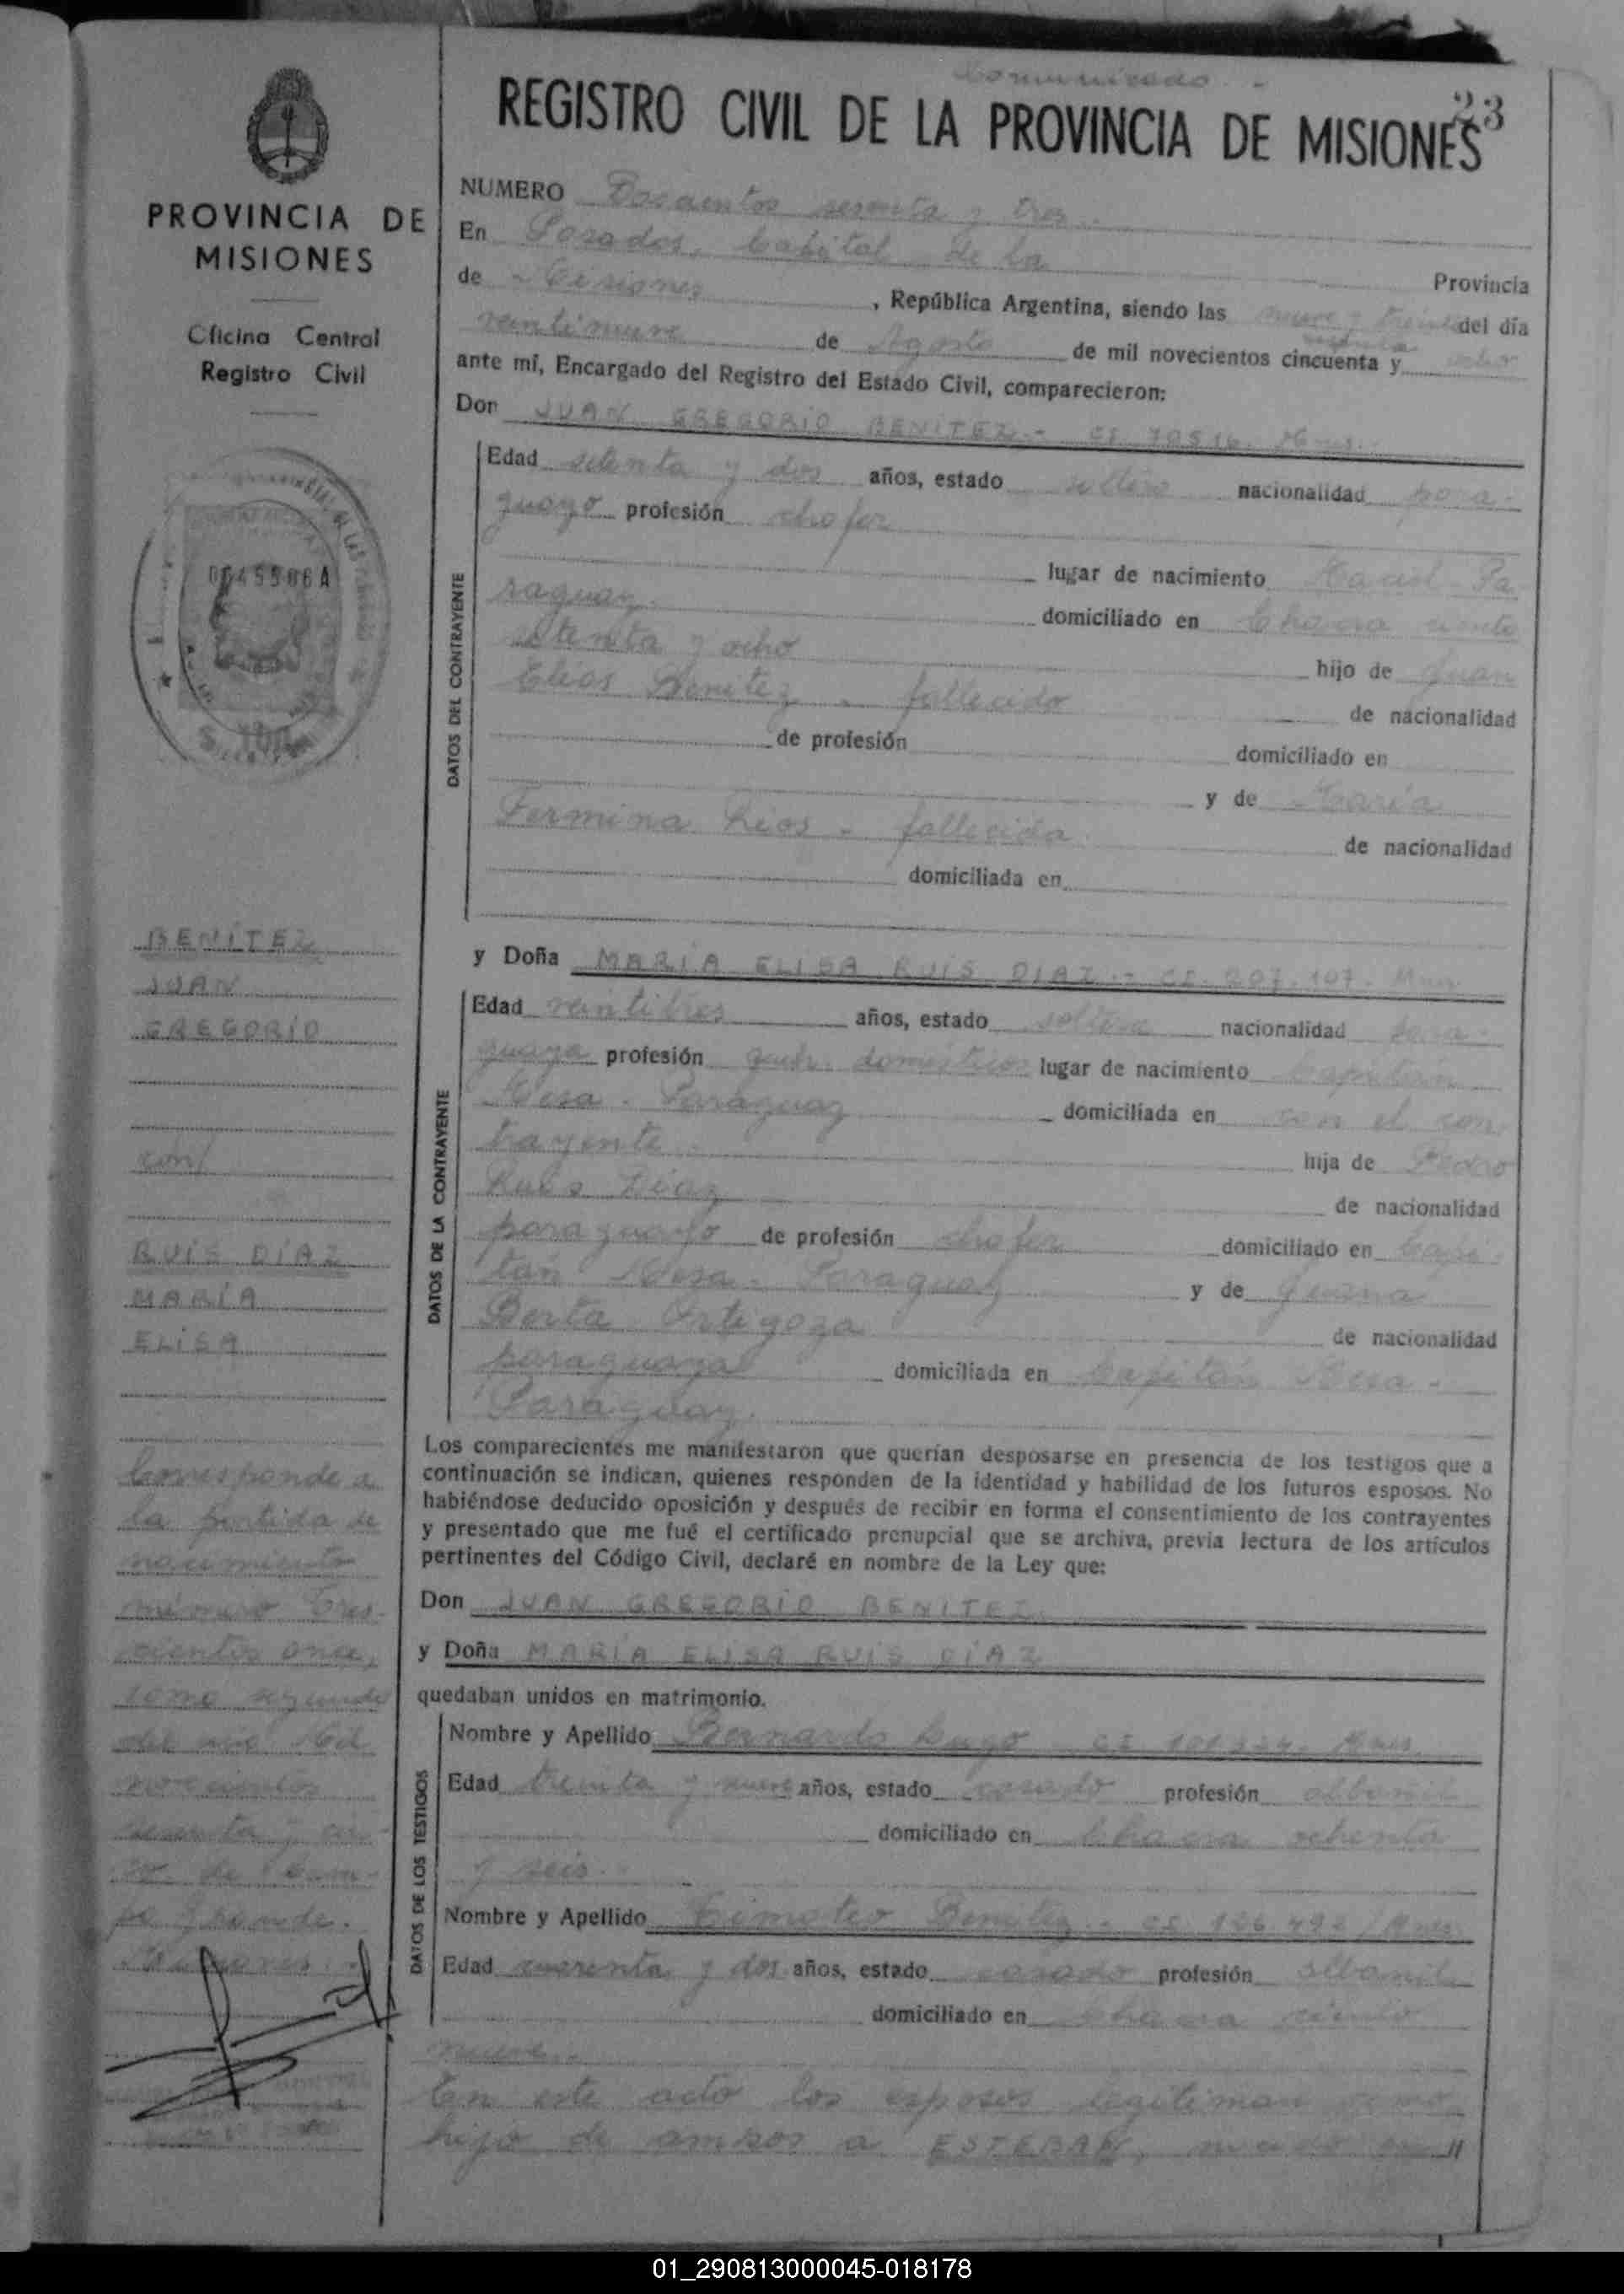 Comunicado.-
23
REGISTRO CIVIL DE LA PROVINCIA DE MISIONES
PROVINCIA DE
MISIONES
Oficina Central
Registro Civil
0045506A
NUMERO Doscientos sesenta y tres.
En Posadas, Capital de la Provincia
de Misiones, República Argentina, siendo las nueve y treinta del día
veintinueve de Agosto de mil novecientos cincuenta y sesenta ocho
ante mí, Encargado del Registro del Estado Civil, comparecieron:
Don JUAN GREGORIO BENITEZ.- CI. 70516. Mnes.
DATOS DEL CONTRAYENTE
Edad setenta y dos años, estado soltero nacionalidad para-
guayo profesión chofer
lugar de nacimiento Pa
raguay. domiciliado en Chacra ciento
setenta y ocho hijo de Juan
Elias Benitez - fallecido de nacionalidad
de profesión domiciliado en
y de María
Fermina Rios - fallecida de nacionalidad
domiciliada en
y Doña MARIA ELISA RUIS DIAZ.- CI. 207.107. Mnes
DATOS DE LA CONTRAYENTE
Edad veintitres años, estado soltera nacionalidad para-
guaya profesión queh. domésticos lugar de nacimiento Capitán
Meza - Paraguay domiciliada en con el con-
trayente. hija de Pedro
Ruis Diaz de nacionalidad
paraguayo de profesión chofer domiciliado en Capi-
tán Meza - Paraguay y de Juana
Berta Ortigoza de nacionalidad
paraguaya domiciliada en Capitán Meza -
Paraguay.
Los comparecientes me manifestaron que querían desposarse en presencia de los testigos que a
continuación se indican, quienes responden de la identidad y habilidad de los futuros esposos. No
habiéndose deducido oposición y después de recibir en forma el consentimiento de los contrayentes
y presentado que me fué el certificado prenupcial que se archiva, previa lectura de los artículos
pertinentes del Código Civil, declaré en nombre de la Ley que:
Don JUAN GREGORIO BENITEZ
y Doña MARÍA ELISA RUIS DÍAZ
quedaban unidos en matrimonio.
DATOS DE LOS TESTIGOS
Nombre y Apellido Bernardo Lugo CI. Mnes
Edad treinta y nueve años, estado casado profesión albañil
domiciliado en Chacra ochenta
y seis.
Nombre y Apellido Timoteo Benitez.- CI. 136.492 Mnes
Edad cuarenta y dos años, estado casado profesión albañil
domiciliado en Chacra ciento
nueve.-
En este acto los esposos legitiman como
hijo de ambos a ESTEBAN, nacido en //
BENÍTEZ
JUAN
GREGORIO
con/
RUIS DÍAZ
MARÍA
ELISA
Corresponde a
la partida de
nacimiento
número tres-
cientos once,
tomo segundo
del año Mil
novecientos
sesenta y cin-
co de Cam-
po Grande.
Misiones.-
01_290813000045-018178